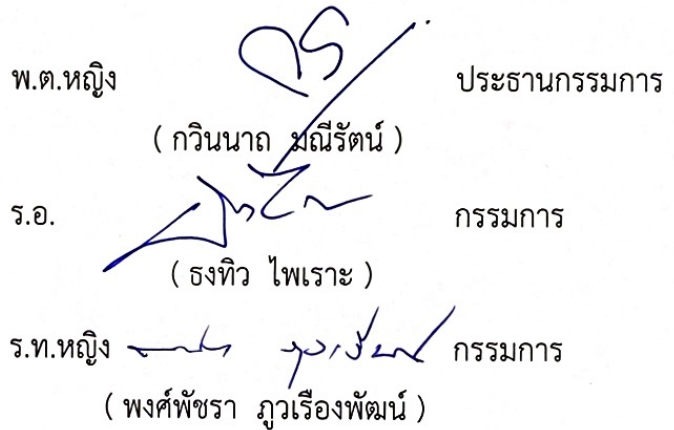 พ.ต.หญิง ประธานกรรมการ
( กวินนาถ มณีรัตน์ )
ร.อ. กรรมการ
( ธงทิว ไพเราะ )
ร.ท.หญิง กรรมการ
( พงศ์พัชรา ภูวเรืองพัฒน์ )